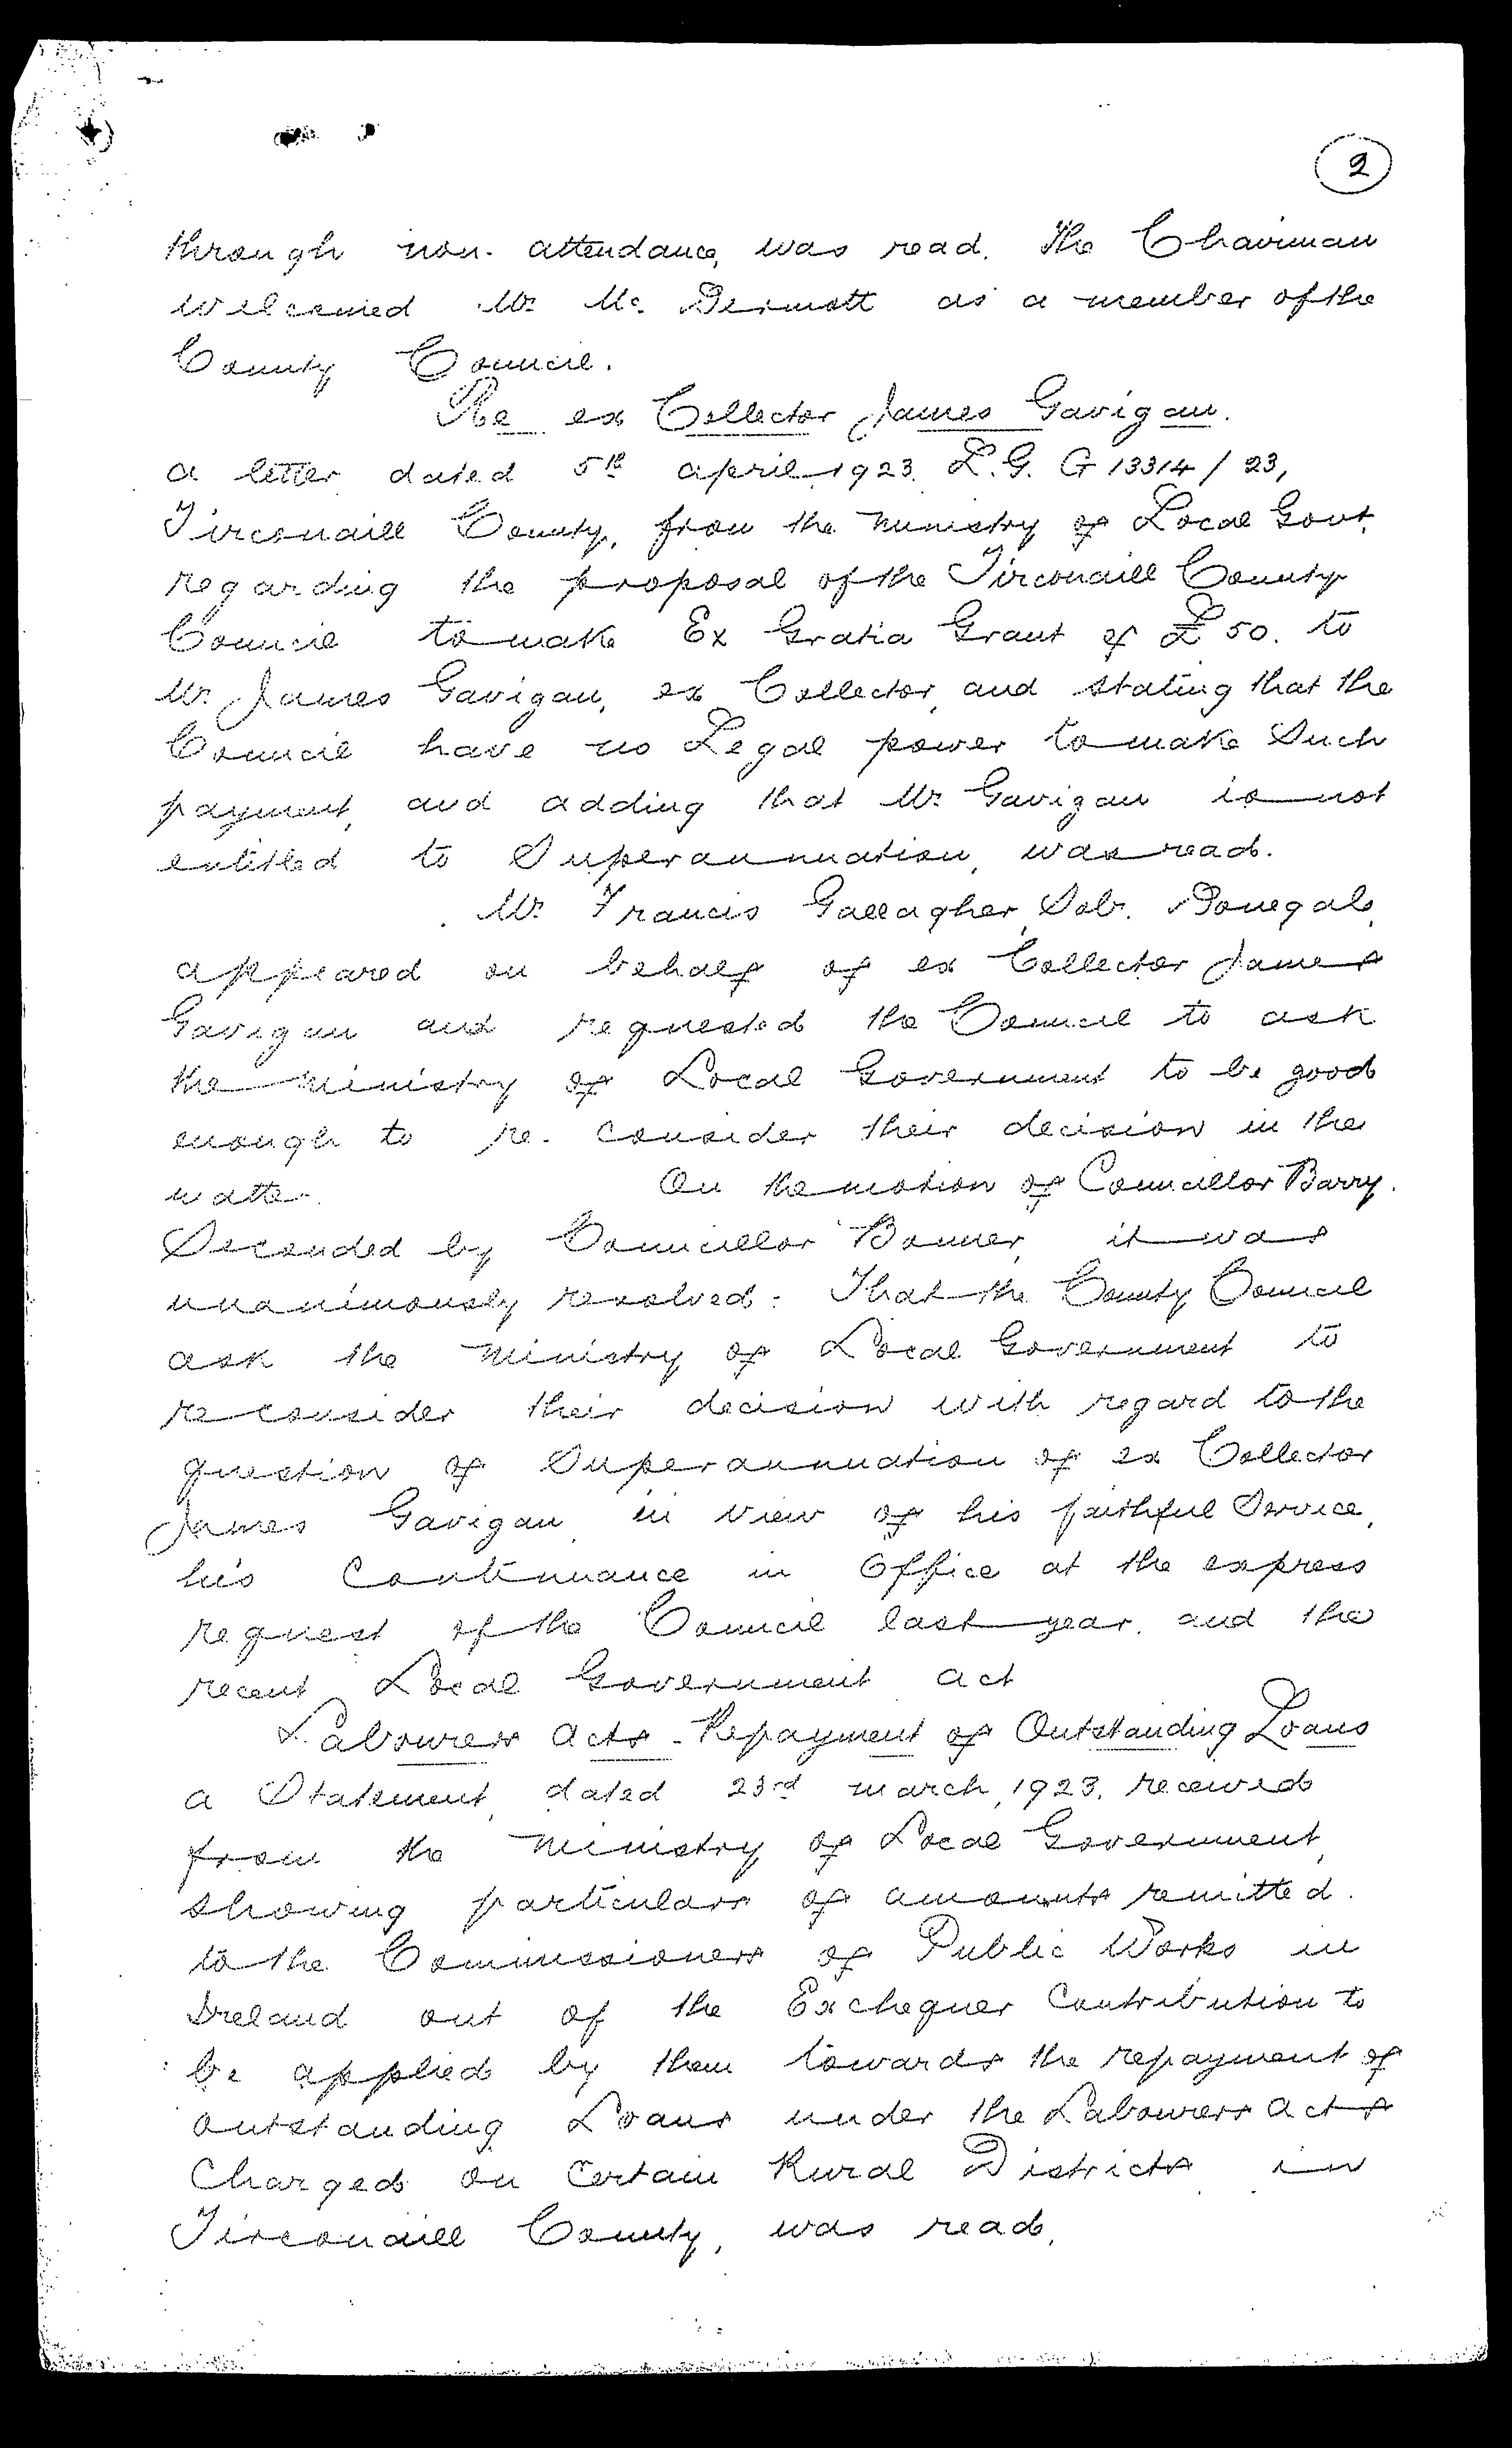 2
through non. attendance, was read. The Chairman
welcomed Mr. Mc. Dermott as a member of the
County Council.
Re ex Collector James Gavigan.
a letter dated 5th april 1923. L.G. G 13314/23,
Tirconaill County, from the Ministry of Local Govt.
regarding the proposal of the Tirconaill County
Council to make Ex Gratia Grant of £50. to
Mr. James Gavigan, ex Collector, and stating that the
Council have no Legal power to make Such
payment, and adding that Mr. Gavigan is not
entitled to Superannuation, was read.
Mr. Francis Gallagher, Solr. Donegal,
appeared on behalf of ex Collector James
Gavigan and requested the Council to ask
the Ministry of Local Government to be good
enough to re-consider their decision in the
matter. On the motion of Councillor Barry.
Seconded by Councillor Bonner, it was
unanimously resolved:- That the County Council
ask the Ministry of Local Government to
re consider their decision with regard to the
question of Superannuation of ex Collector
James Gavigan in view of his faithful Service,
his Continuance in Office at the express
request of the Council last year, and the
recent Local Government act
Labourers acts - Repayment of Outstanding Loans
a Statement, dated 23rd march, 1923. received
from the Ministry of Local Government,
showing particulars of amounts remitted.
to the Commissioners of Public Works in
Ireland out of the Exchequer Contribution to
be applied by them towards the repayment of
outstanding Loans under the Labourers acts
Charged on Certain Rural Districts in
Tirconaill County, was read.